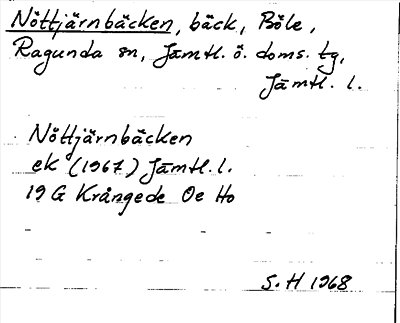 Nöttjärnbäcken, bäck, Böle,
Ragunda sn, Jämtl. ö. doms. tg,
Jämtl. l.
Nöttjärnbäcken
ek (1967) Jämtl. l.
19 G Krångede Oe Ho
S. H 1968